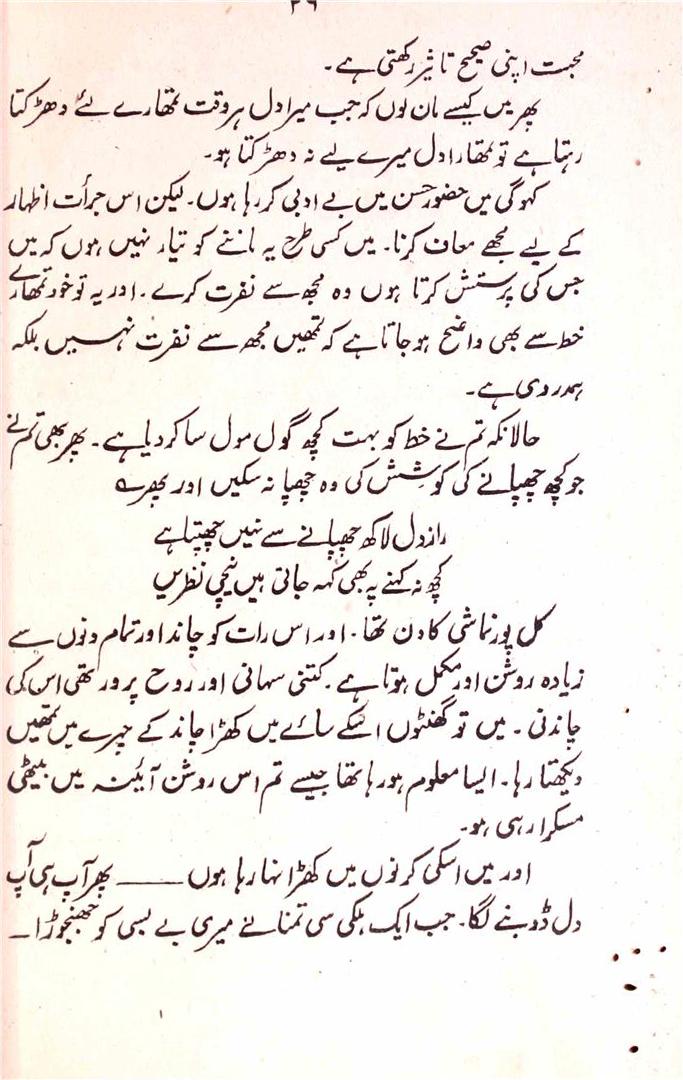 ۳۶
محبت اپنی صحیح تاثیر رکھتی ہے۔
پھر میں کیسے مان لوں کہ جب میرا دل ہر وقت تمھارے لئے دھڑکتا
رہتا ہے تو تمھارا دل میرے لیے نہ دھڑکتا ہو۔
کہوگی میں حضور حسن میں بے ادبی کر رہا ہوں۔ لیکن اس جرأت اظہار
کے لیے مجھے معاف کرنا۔ میں کسی طرح یہ ماننے کو تیار نہیں ہوں کہ میں
جس کی پرستش کرتا ہوں وہ مجھ سے نفرت کرے۔ اور یہ تو خود تمھارے
خط سے بھی واضح ہو جاتا ہے کہ تمھیں مجھ سے نفرت نہیں بلکہ
ہمدردی ہے۔
حالانکہ تم نے خط کو بہت کچھ گول مول سا کر دیا ہے۔ پھر بھی تم نے
جو کچھ چھپانے کی کوشش کی وہ چھپا نہ سکیں اور پھر ے
راز دل لاکھ چھپانے سے نہیں چھپتا ہے
کچھ نہ کہنے پہ بھی کہہ جاتی ہیں نیچی نظریں
کل پورنماشی کا دن تھا۔ اور اس رات کو چاند اور تمام دنوں سے
زیادہ روشن اور مکمل ہوتا ہے۔ کتنی سہانی اور روح پرور تھی اس کی
چاندنی۔ میں تو گھنٹوں اسکے سائے میں کھڑا چاند کے چہرے میں تمھیں
دیکھتا رہا۔ ایسا معلوم ہو رہا تھا جیسے تم اس روشن آئینہ میں بیٹھی
مسکرا رہی ہو۔
اور میں اسکی کرنوں میں کھڑا نہا رہا ہوں ــــــ پھر آپ ہی آپ
دل ڈوبنے لگا۔ جب ایک ہلکی سی تمنا نے میری بے بسی کو جھنجوڑا ــ